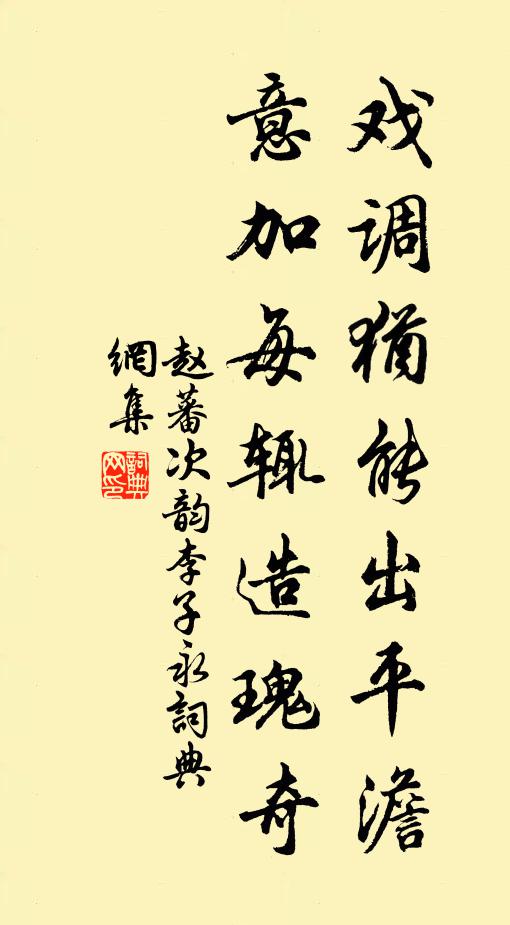 戏调犹能出平澹
意加每辄造瑰奇
赵蕃次韵李子永詞典
網集
詞典网印